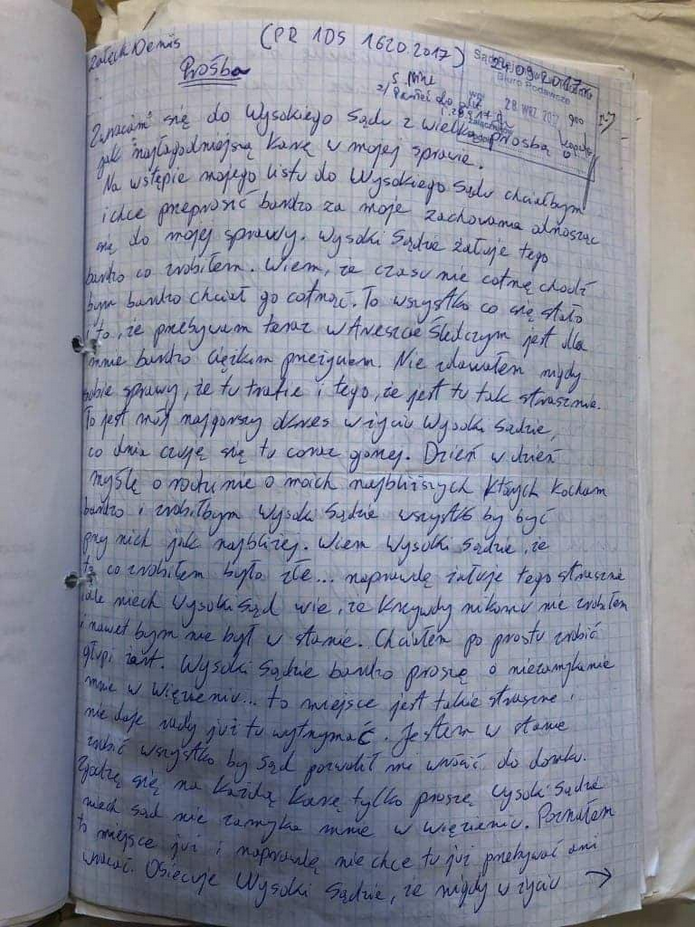 Załęcki Denis (PR 1DS 1620.2017)
Prośba
24.09.2017r
Biuro Podawcze
28 WRZ 2017
Zwracam się do Wysokiego Sądu z wielką prośbą o
jak najłagodniejszą karę w mojej sprawie.
Na wstępie mojego listu do Wysokiego Sądu chciałbym
i chce przeprosić bardzo za moje zachowania odnosząc
się do mojej sprawy. Wysoki Sądzie żałuje tego
bardzo co zrobiłem. Wiem, że czasu nie cofnę chodź
bym bardzo chciał go cofnąć. To wszystko co się stało
i to, że przebywam teraz w Areszcie Śledczym jest dla
mnie bardzo ciężkim przeżyciem. Nie zdawałem nigdy
sobie sprawy, że tu trafie i tego, że jest tu tak strasznie.
To jest mój najgorszy okres w życiu Wysoki Sądzie,
co dnia czuję się tu coraz gorzej. Dzień w dzień
myślę o rodzinie o moich najbliższych których kocham
bardzo i zrobiłbym Wysoki Sądzie wszystko by być
przy nich jak najbliżej. Wiem Wysoki Sądzie, że
to co zrobiłem było złe... naprawdę żałuje tego strasznie
ale niech Wysoki Sąd wie, że krzywdy nikomu nie zrobiłem
i nawet bym nie był w stanie. Chciałem po prostu zrobić
głupi żart. Wysoki Sądzie bardzo proszę o niezamykanie
mnie w więzieniu... to miejsce jest takie straszne i
nie daje rady już tu wytrzymać. Jestem w stanie
zrobić wszystko by Sąd pozwolił mi wrócić do domu.
Zgodzę się na każdą karę tylko proszę Wysoki Sądzie
niech sąd nie zamyka mnie w więzieniu. Poznałem
to miejsce już i naprawdę nie chce tu już przebywać ani
wracać. Obiecuje Wysoki Sądzie, że nigdy w życiu →